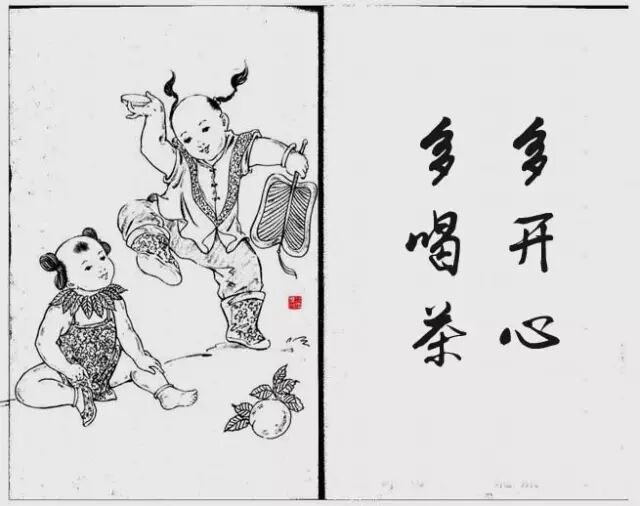 多开心
多喝茶